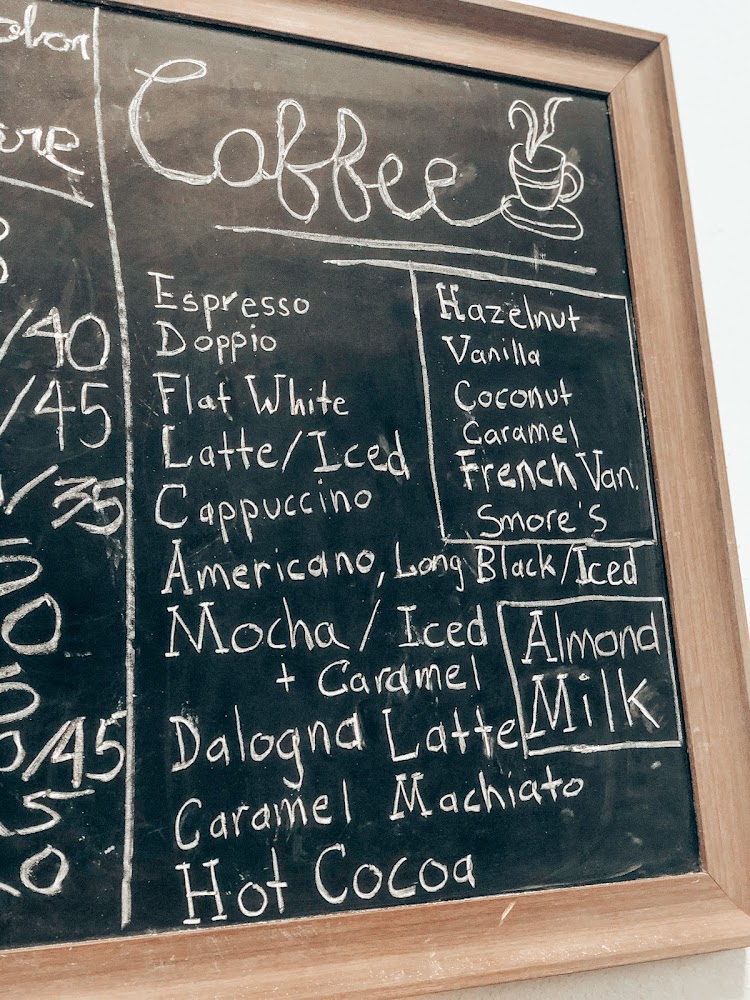 Coffee
/40
/45
/35
0
0/45
5
0
Espresso
Doppio
Flat White
Latte/Iced
Cappuccino
Americano, Long Black/Iced
Mocha/Iced
+ Caramel
Dalogna Latte
Caramel Machiato
Hot Cocoa
Hazelnut
Vanilla
Coconut
Caramel
French Van.
Smore's
Almond
Milk